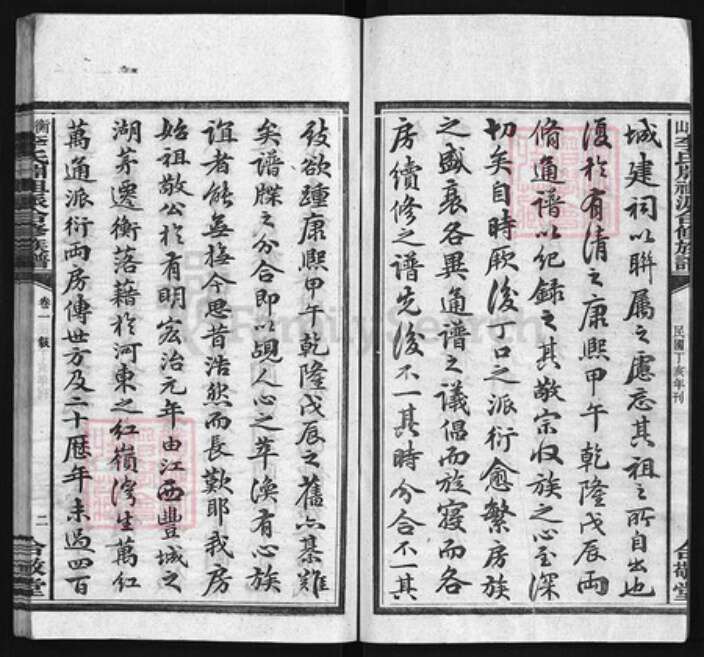 城建祠以聯属之慮忘其祖之所自出也
復於有清之康熙甲午乾隆戊辰兩
脩通譜以紀録之其敬宗收族之心至深
切矣自時厥後丁口之派衍愈繁房族
之盛衰各異通譜之議倡而旋寝而各
房續修之譜先後不一其時分合不一其
民國丁亥年刊
合敬堂
致欲踵康熙甲午乾隆戊辰之舊亦綦難
矣譜牒之分合即以覘人心之萃渙有心族
誼者能無撫今思昔浩然而長歎耶我房
始祖敬公於有明宏治元年由江西豐城之
湖茅遷衡落藉於河東之紅嶺灣生萬紅
萬通派衍兩房傳世方及二十歷年未過四百
卷一
二
合敬堂